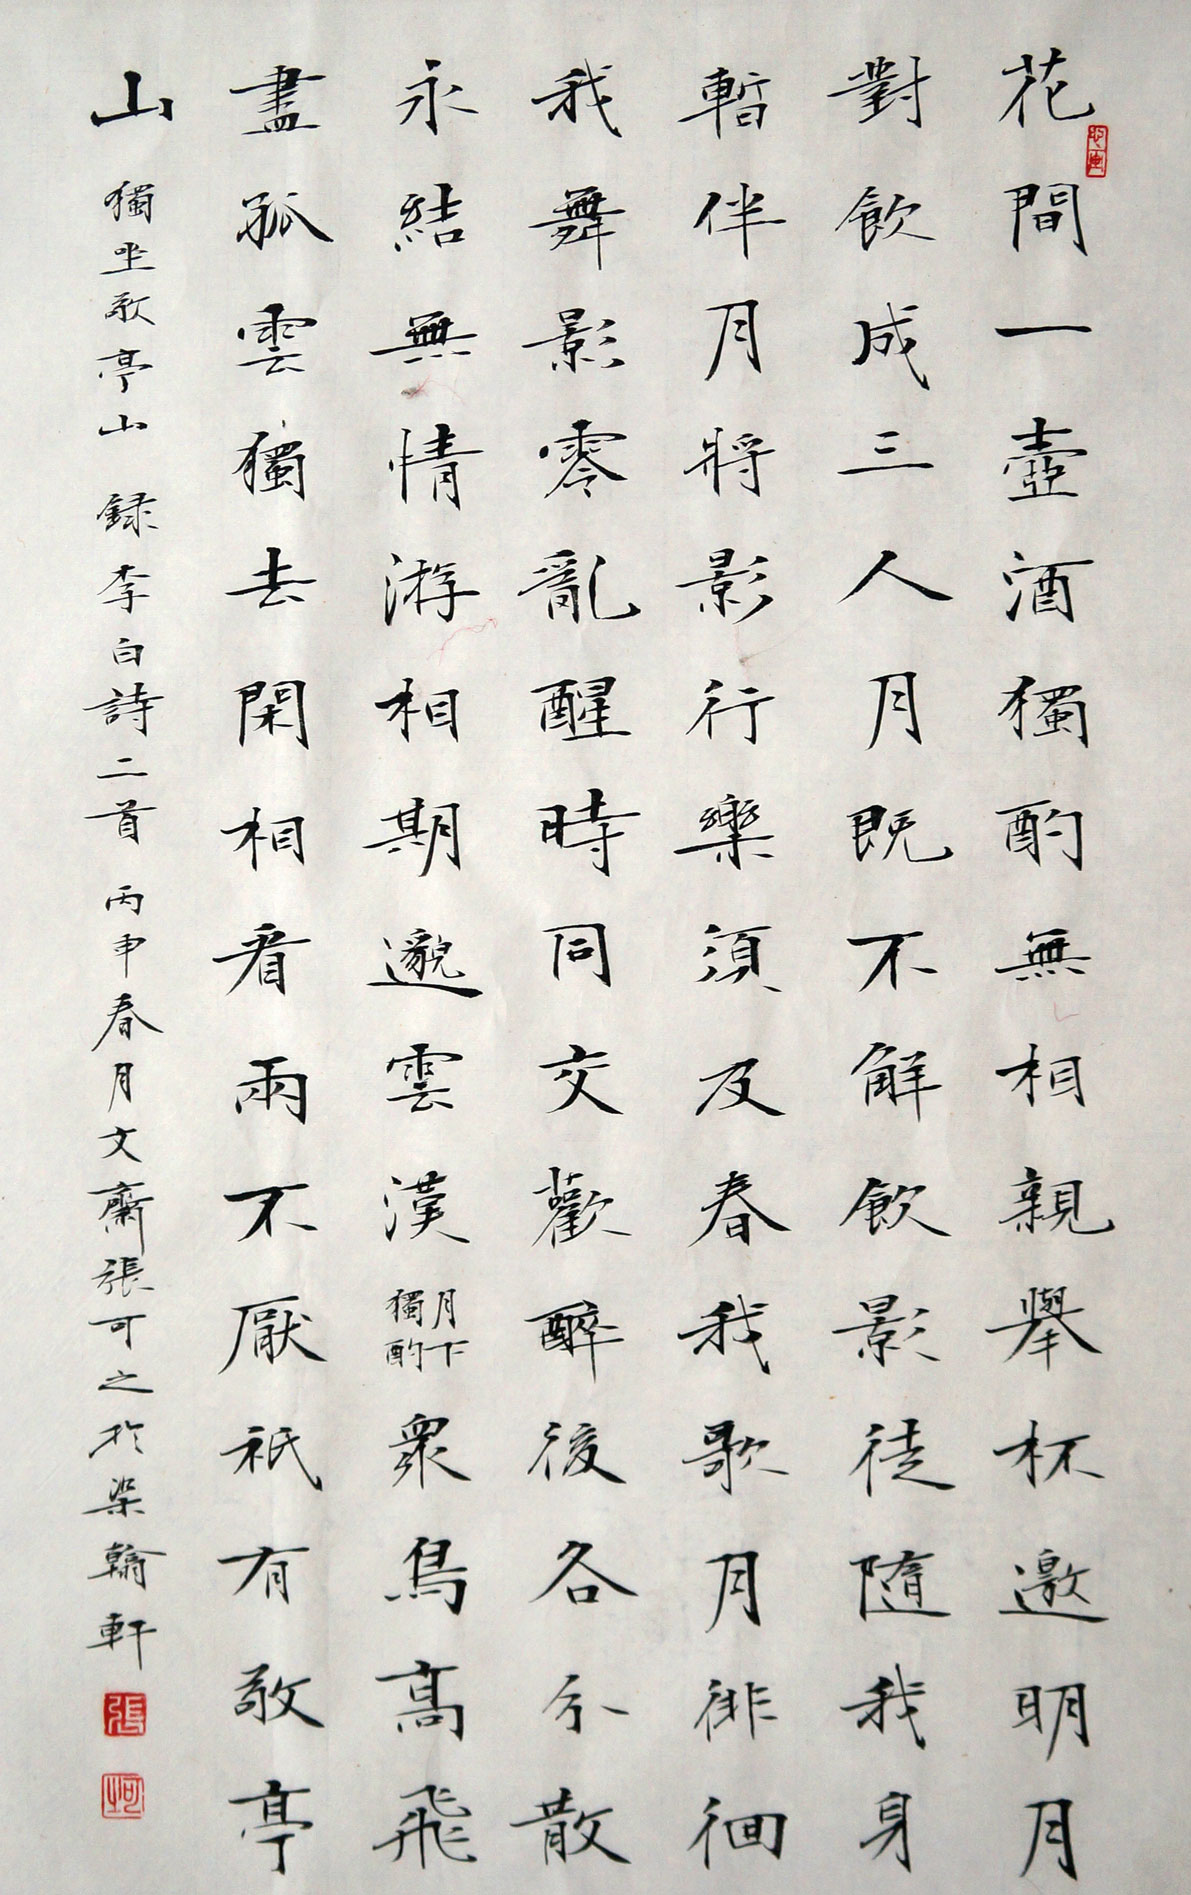 花間一壺酒獨酌無相親舉杯邀明月
對飲成三人月既不解飲影徒隨我身
暫伴月將影行樂須及春我歌月徘徊
我舞影零亂醒時同交歡醉後各分散
永結無情游相期邈雲漢月下獨酌衆鳥高飛
盡孤雲獨去閑相看兩不厭祇有敬亭
山 獨坐敬亭山 録李白詩二首 丙申春月文齋張可之於染翰軒
張